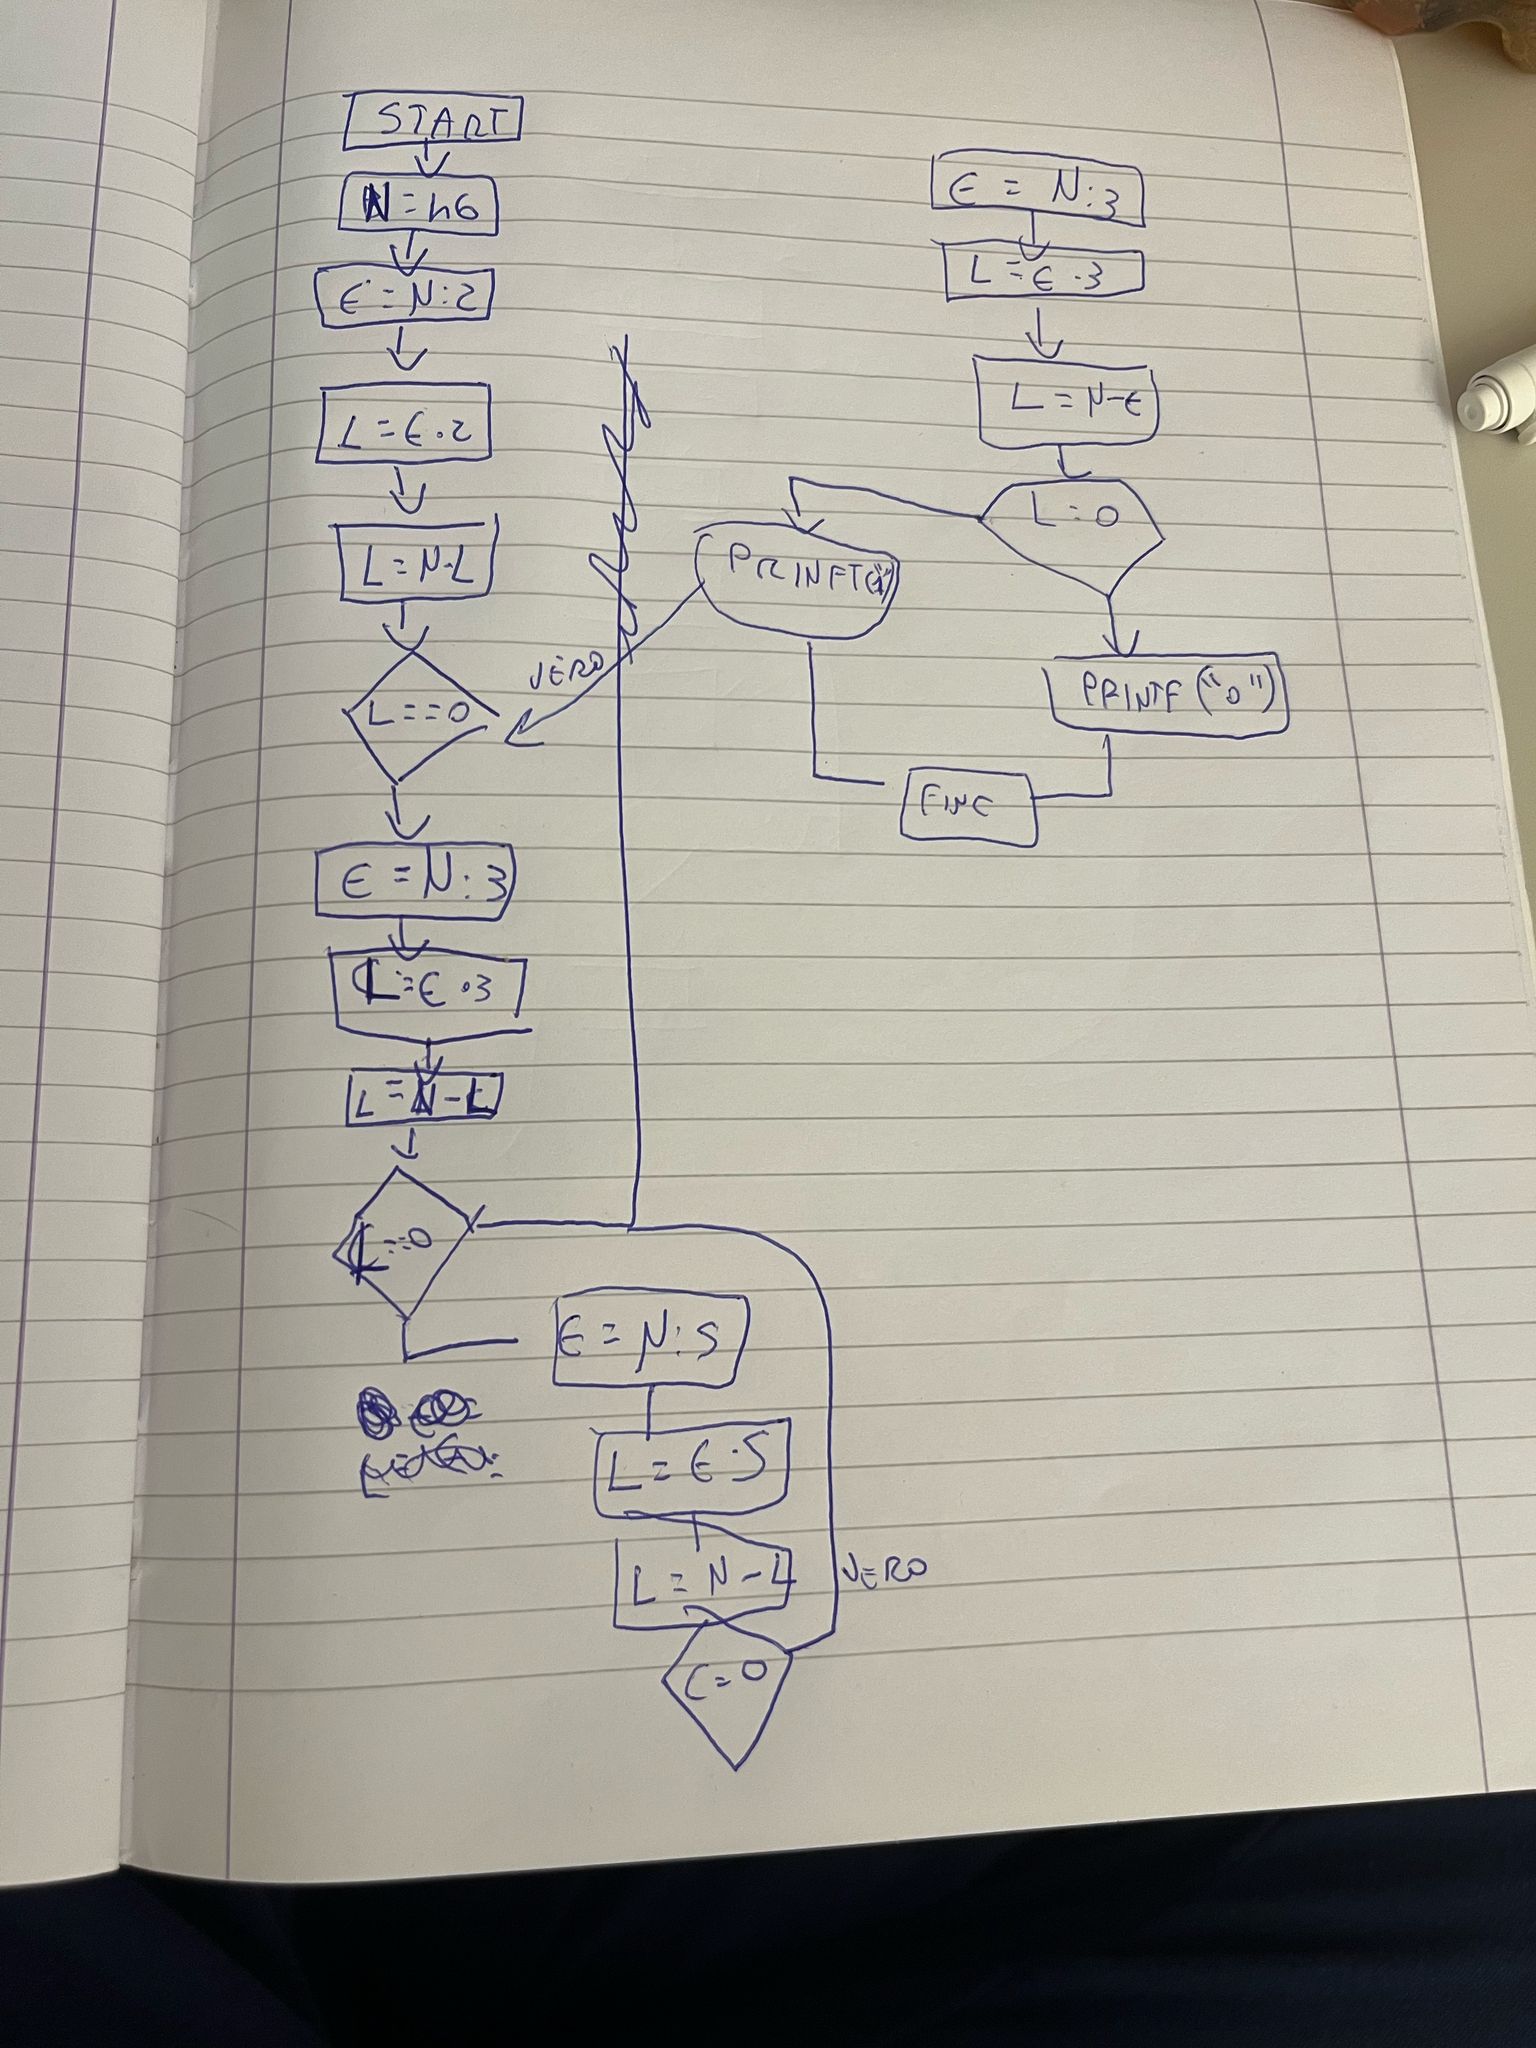 START
N=46
E=N:2
L=E·2
L=N-L
L==0
VERO
E=N:3
L=E·3
L=N-L
L==0
E=N:5
L=E·5
L=N-L
VERO
C=0
E=N:3
L=E·3
L=N-E
L=0
PRINFT("1")
PRINTF("0")
FINE